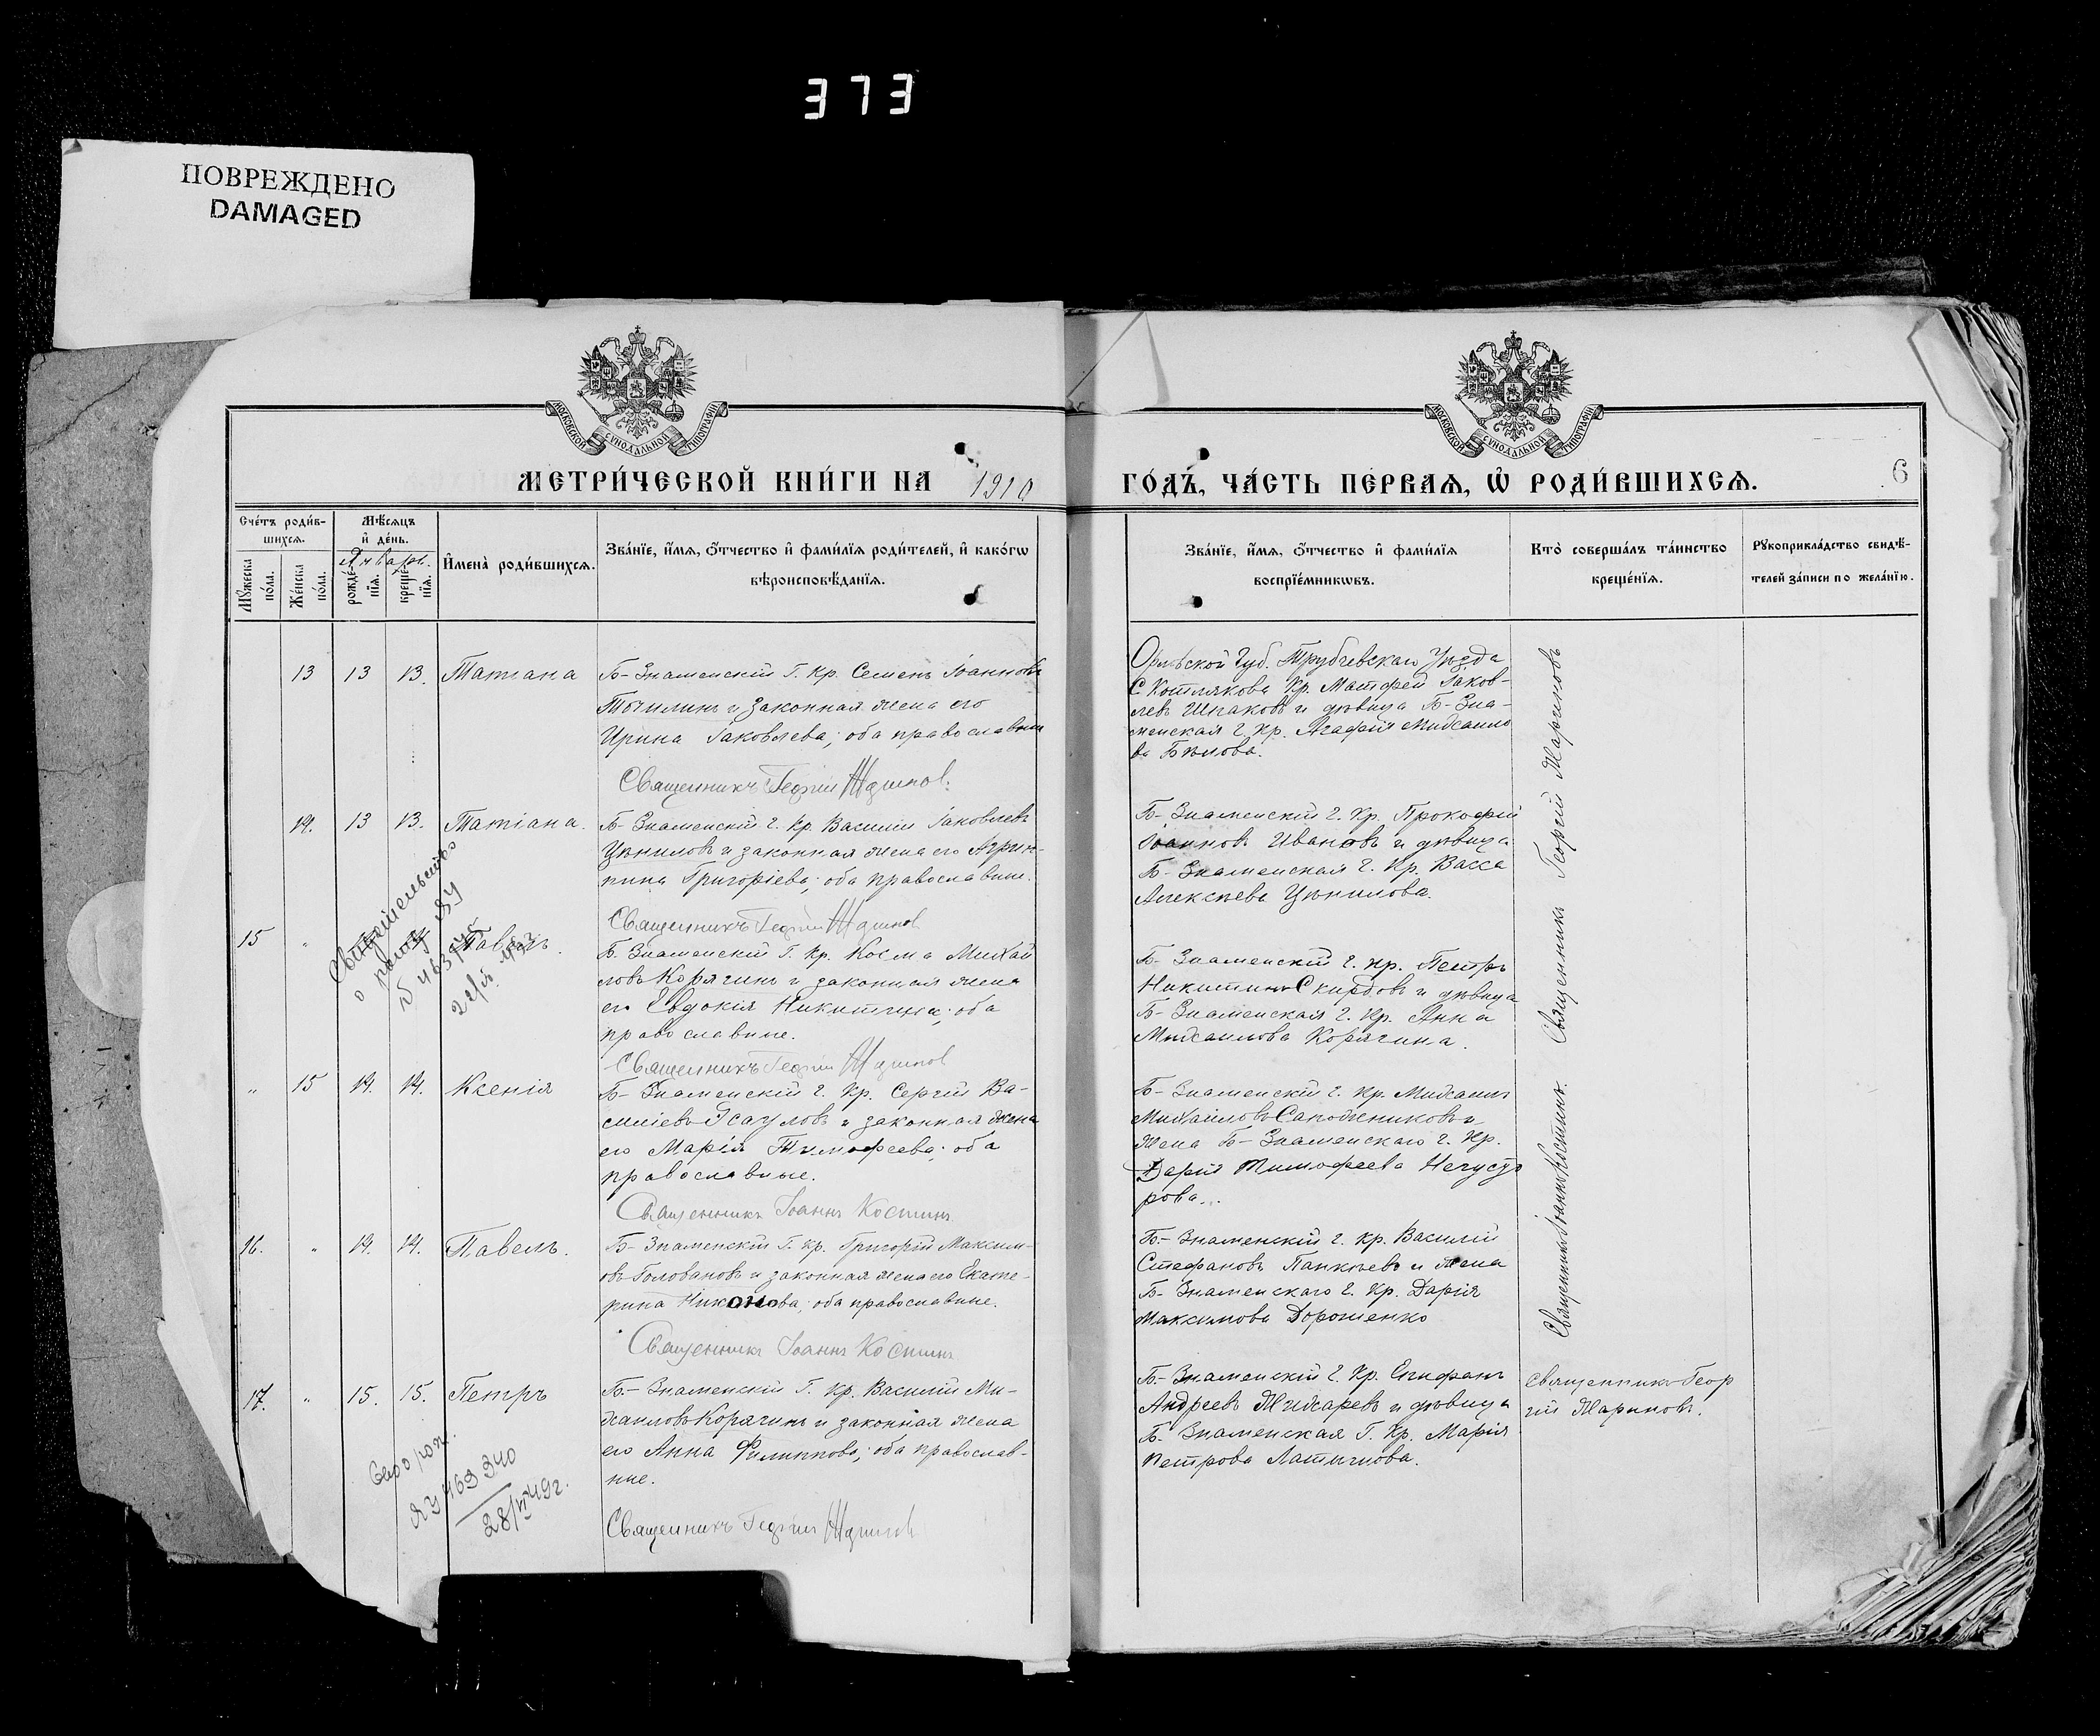 373
ПОВРЕЖДЕНО
DAMAGED
МОСКОВСКОЙ СѴНОДАЛЬНОЙ ТИПОГРАФІИ
МОСКОВСКОЙ СѴНОДАЛЬНОЙ ТИПОГРАФІИ
МЕТРИ́ЧЕСКОЙ КНИ́ГИ НА 1910
ГО́ДЪ, ЧА́СТЬ ПЕ́РВАЯ, Ѡ҆ РОДИ́ВШИХСЯ.
6
Сче́тъ роди́в-
шихся.
Мꙋжеска по́ла.
Же́нска по́ла.
Мѣ́сяцъ
и҆ де́нь.
Январь.
рожде́-
нїя.
креще́-
нїя.
И҆мена̀ роди́вшихся.
Зва́нїе, и҆́мя, ѻ҆́тчество и҆ фами́лїя роди́телей, и҆ како́гѡ
вѣроисповѣ́данїя.
Зва́нїе, и҆́мя, ѻ҆́тчество и҆ фами́лїя
воспрїе́мникѡвъ.
Кто̀ соверша́лъ та́инство
креще́нїя.
Рꙋкоприкла́дство свидѣ́-
телей за́писи по жела́нїю.
13 13 13. Татіана
Б-Знаменскій г. кр. Семенъ Іоанновъ
Точилинъ и законная жена его
Ирина Іаковлева; оба православные
Священникъ Георгій
Орловской губ. Трубчевскаго уѣзда
с. Котлякова кр. Матфей Іаков-
левъ Шпаковъ и дѣвица Б-Зна-
менская г. кр. Агафія Михаило
ва Бѣлова.
14. 13 13. Татіана.
Б-Знаменскій г. кр. Василій Іаковлевъ
Цѣпиловъ и законная жена его Агрип-
пина Григоріева; оба православные.
Священникъ Георгій
Б-Знаменскій г. кр. Прокофій
Іоанновъ Ивановъ и дѣвица
Б-Знаменская г. кр. Васса
Алексѣева Цѣпилова.
15 " Павелъ.
Свидѣтельство
о
2
Б Знаменскій г. кр. Косма Михай
ловъ Корягинъ и законная жена
его Евдокія Никитина; оба
православные.
Священникъ Георгій
Б-Знаменскій г. кр. Петръ
Никитинъ Скирдовъ и дѣвица
Б-Знаменская г. кр. Анна
Михаилова Корягина.
" 15 14. 14. Ксенія
Б-Знаменскій г. кр. Сергій Ва-
силіевъ Эсауловъ и законная жена
его Марія Тимофеева; оба
православные.
Священникъ Іоаннъ Костинъ
Б-Знаменскій г. кр. Михаилъ
Михайловъ Сапожниковъ и
жена Б-Знаменскаго г. кр.
Дарія Тимофеева Нечуст
рова.
16. " 14. 14. Павелъ.
Б-Знаменскій г. кр. Григорій Максим-
овъ Головановъ и законная жена его Екате-
рина Никонова; оба православные.
Священникъ Іоаннъ Костинъ
Б-Знаменскій г. кр. Василій
Стефановъ Панкѣевъ и жена
Б-Знаменскаго г. кр. Дарія
Максимова Дорошенко
17. " 15. 15. Петръ
ЯУ 463340
28/VI 49г.
Б-Знаменскій г. кр. Василій Ми-
хаиловъ Корягинъ и законная жена
его Анна Филиппова; оба православ-
ные.
Священникъ Георгій
Б-Знаменскій г. кр. Епифанъ
Андреевъ Жихаревъ и дѣвица
Б-Знаменская г. кр. Марія
Петрова Латычова.
Священникъ Георгій Мариновъ
Священникъ Іоаннъ Костинъ.
Священникъ Геор
гій Мариновъ.